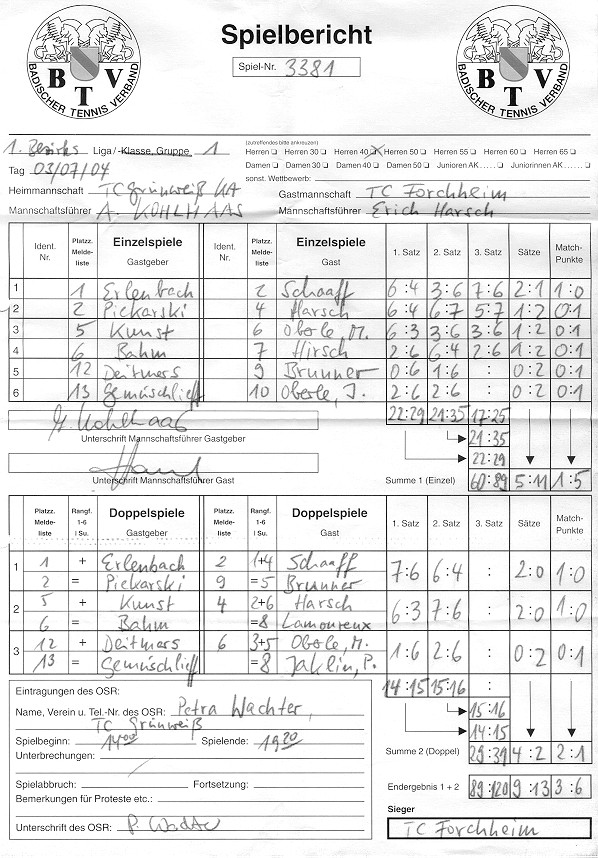 BADISCHER TENNIS VERBAND
BTV
Spielbericht
BADISCHER TENNIS VERBAND
BTV
Spiel-Nr. 3381
(zutreffendes bitte ankreuzen)
1. Bezirks Liga/-Klasse, Gruppe 1
Herren Herren 30 Herren 40 X Herren 50 Herren 55 Herren 60 Herren 65
Damen Damen 30 Damen 40 Damen 50 Junioren AK ..... Juniorinnen AK .....
Tag 03/07/04
sonst. Wettbewerb:
Heimmannschaft TC Grünweiß KA Gastmannschaft TC Forchheim
Mannschaftsführer A. KOHLHAAS Mannschaftsführer Erich Harsch
Ident. Nr. Platzz. Meldeliste Einzelspiele Gastgeber Ident. Nr. Platzz. Meldeliste Einzelspiele Gast 1. Satz 2. Satz 3. Satz Sätze Match-Punkte
1 1 Erlenbach 2 Schaaff 6:4 3:6 7:6 2:1 1:0
2 2 Piekarski 4 Harsch 6:4 6:7 5:7 1:2 0:1
3 5 Kunst 6 Oberle M. 6:3 3:6 3:6 1:2 0:1
4 6 Bahm 7 Hirsch 2:6 6:4 2:6 1:2 0:1
5 12 Deitmers 9 Brunner 0:6 1:6 : 0:2 0:1
6 13 Gemüschlieff 10 Oberle, J. 2:6 2:6 : 0:2 0:1
22:29 21:35 17:25
Kohlhaas
Unterschrift Mannschaftsführer Gastgeber
21:35
22:29
Unterschrift Mannschaftsführer Gast
Summe 1 (Einzel) 60:89 5:11 1:5
Platzz. Meldeliste Rangf. 1-6 I Su. Doppelspiele Gastgeber Platzz. Meldeliste Rangf. 1-6 I Su. Doppelspiele Gast 1. Satz 2. Satz 3. Satz Sätze Match-Punkte
1 1 + Erlenbach 2 1+4 Schaaff 7:6 6:4 : 2:0 1:0
2 = Piekarski 9 =5 Brunner
2 5 + Kunst 4 2+6 Harsch 6:3 7:6 : 2:0 1:0
6 = Bahm =8 Lamoureux
3 12 + Deitmers 6 3+5 Oberle, M. 1:6 2:6 : 0:2 0:1
13 = Gemüschlieff =8 Jaklin, P.
14:15 15:16
Eintragungen des OSR:
15:16
Name, Verein u. Tel.-Nr. des OSR: Petra Wachter,
TC Grünweiß
14:15
Spielbeginn: 14 00 Spielende: 19 20
Summe 2 (Doppel) 29:31 4:2 2:1
Unterbrechungen:
Spielabbruch: Fortsetzung:
Endergebnis 1 + 2 89:120 9:13 3:6
Bemerkungen für Proteste etc.:
Sieger
Unterschrift des OSR: P. Wachter
TC Forchheim